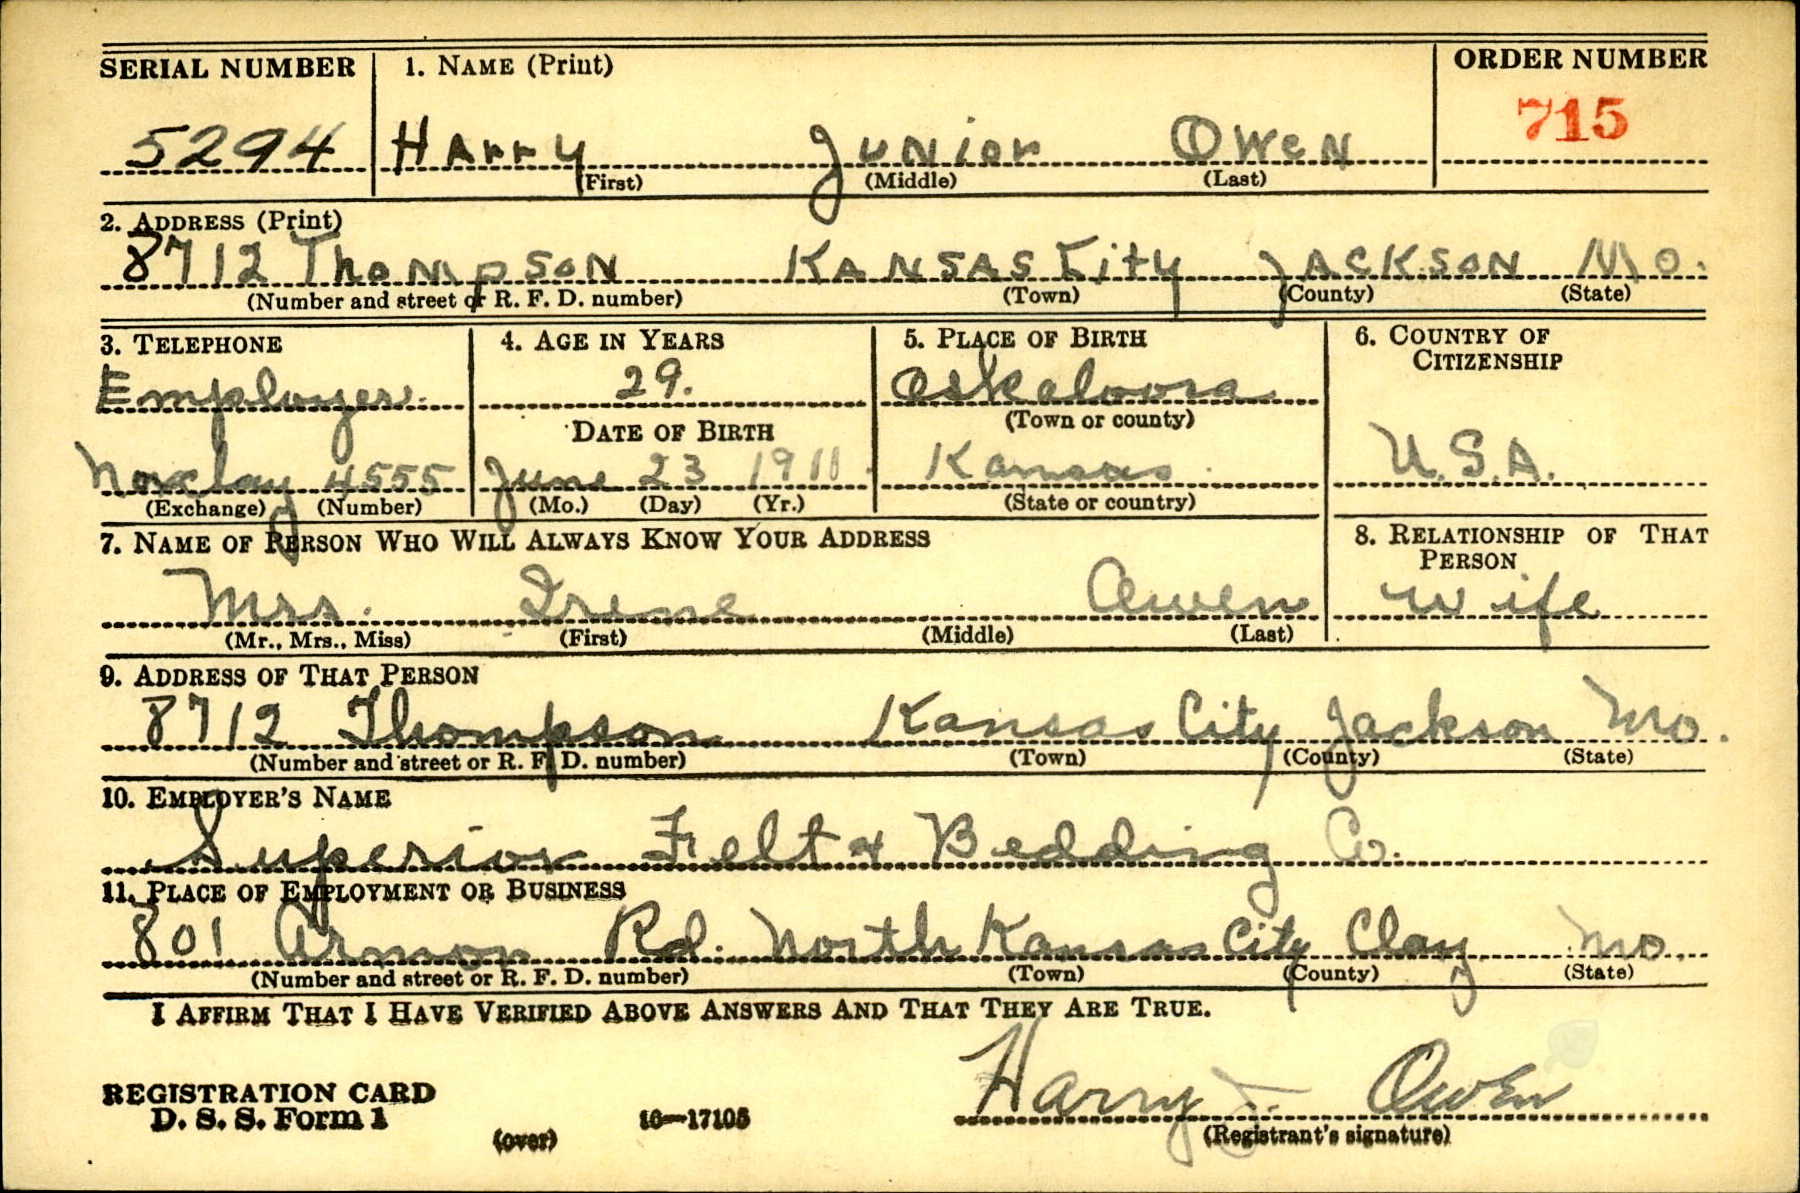 SERIAL NUMBER 1. NAME (Print) ORDER NUMBER
5294 Harry Junior Owen 715
(First) (Middle) (Last)
2. ADDRESS (Print)
8712 Thompson Kansas City Jackson Mo.
(Number and street or R. F. D. number) (Town) (County) (State)
3. TELEPHONE 4. AGE IN YEARS 5. PLACE OF BIRTH 6. COUNTRY OF CITIZENSHIP
Employer. 29. Oskaloosa
(Town or county)
DATE OF BIRTH
Norclay 4555 June 23 1911 Kansas U.S.A.
(Exchange) (Number) (Mo.) (Day) (Yr.) (State or country)
7. NAME OF PERSON WHO WILL ALWAYS KNOW YOUR ADDRESS 8. RELATIONSHIP OF THAT PERSON
Mrs. Irene Owen Wife
(Mr., Mrs., Miss) (First) (Middle) (Last)
9. ADDRESS OF THAT PERSON
8712 Thompson Kansas City Jackson Mo.
(Number and street or R. F. D. number) (Town) (County) (State)
10. EMPLOYER'S NAME
Superior Felt & Bedding Co.
11. PLACE OF EMPLOYMENT OR BUSINESS
801 Armor Rd. North Kansas City Clay Mo.
(Number and street or R. F. D. number) (Town) (County) (State)
I AFFIRM THAT I HAVE VERIFIED ABOVE ANSWERS AND THAT THEY ARE TRUE.
Harry J. Owen
REGISTRATION CARD
D. S. S. Form 1
(over) 16—17105 (Registrant's signature)